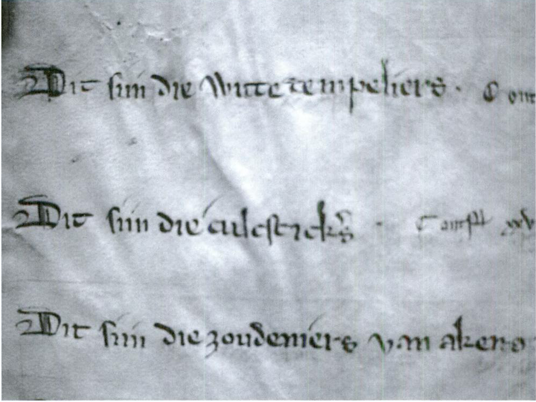 Dit siin die Witte tempeliers. Com
Dit siin die culcstickers
Dit siin die zoudeniers van akers